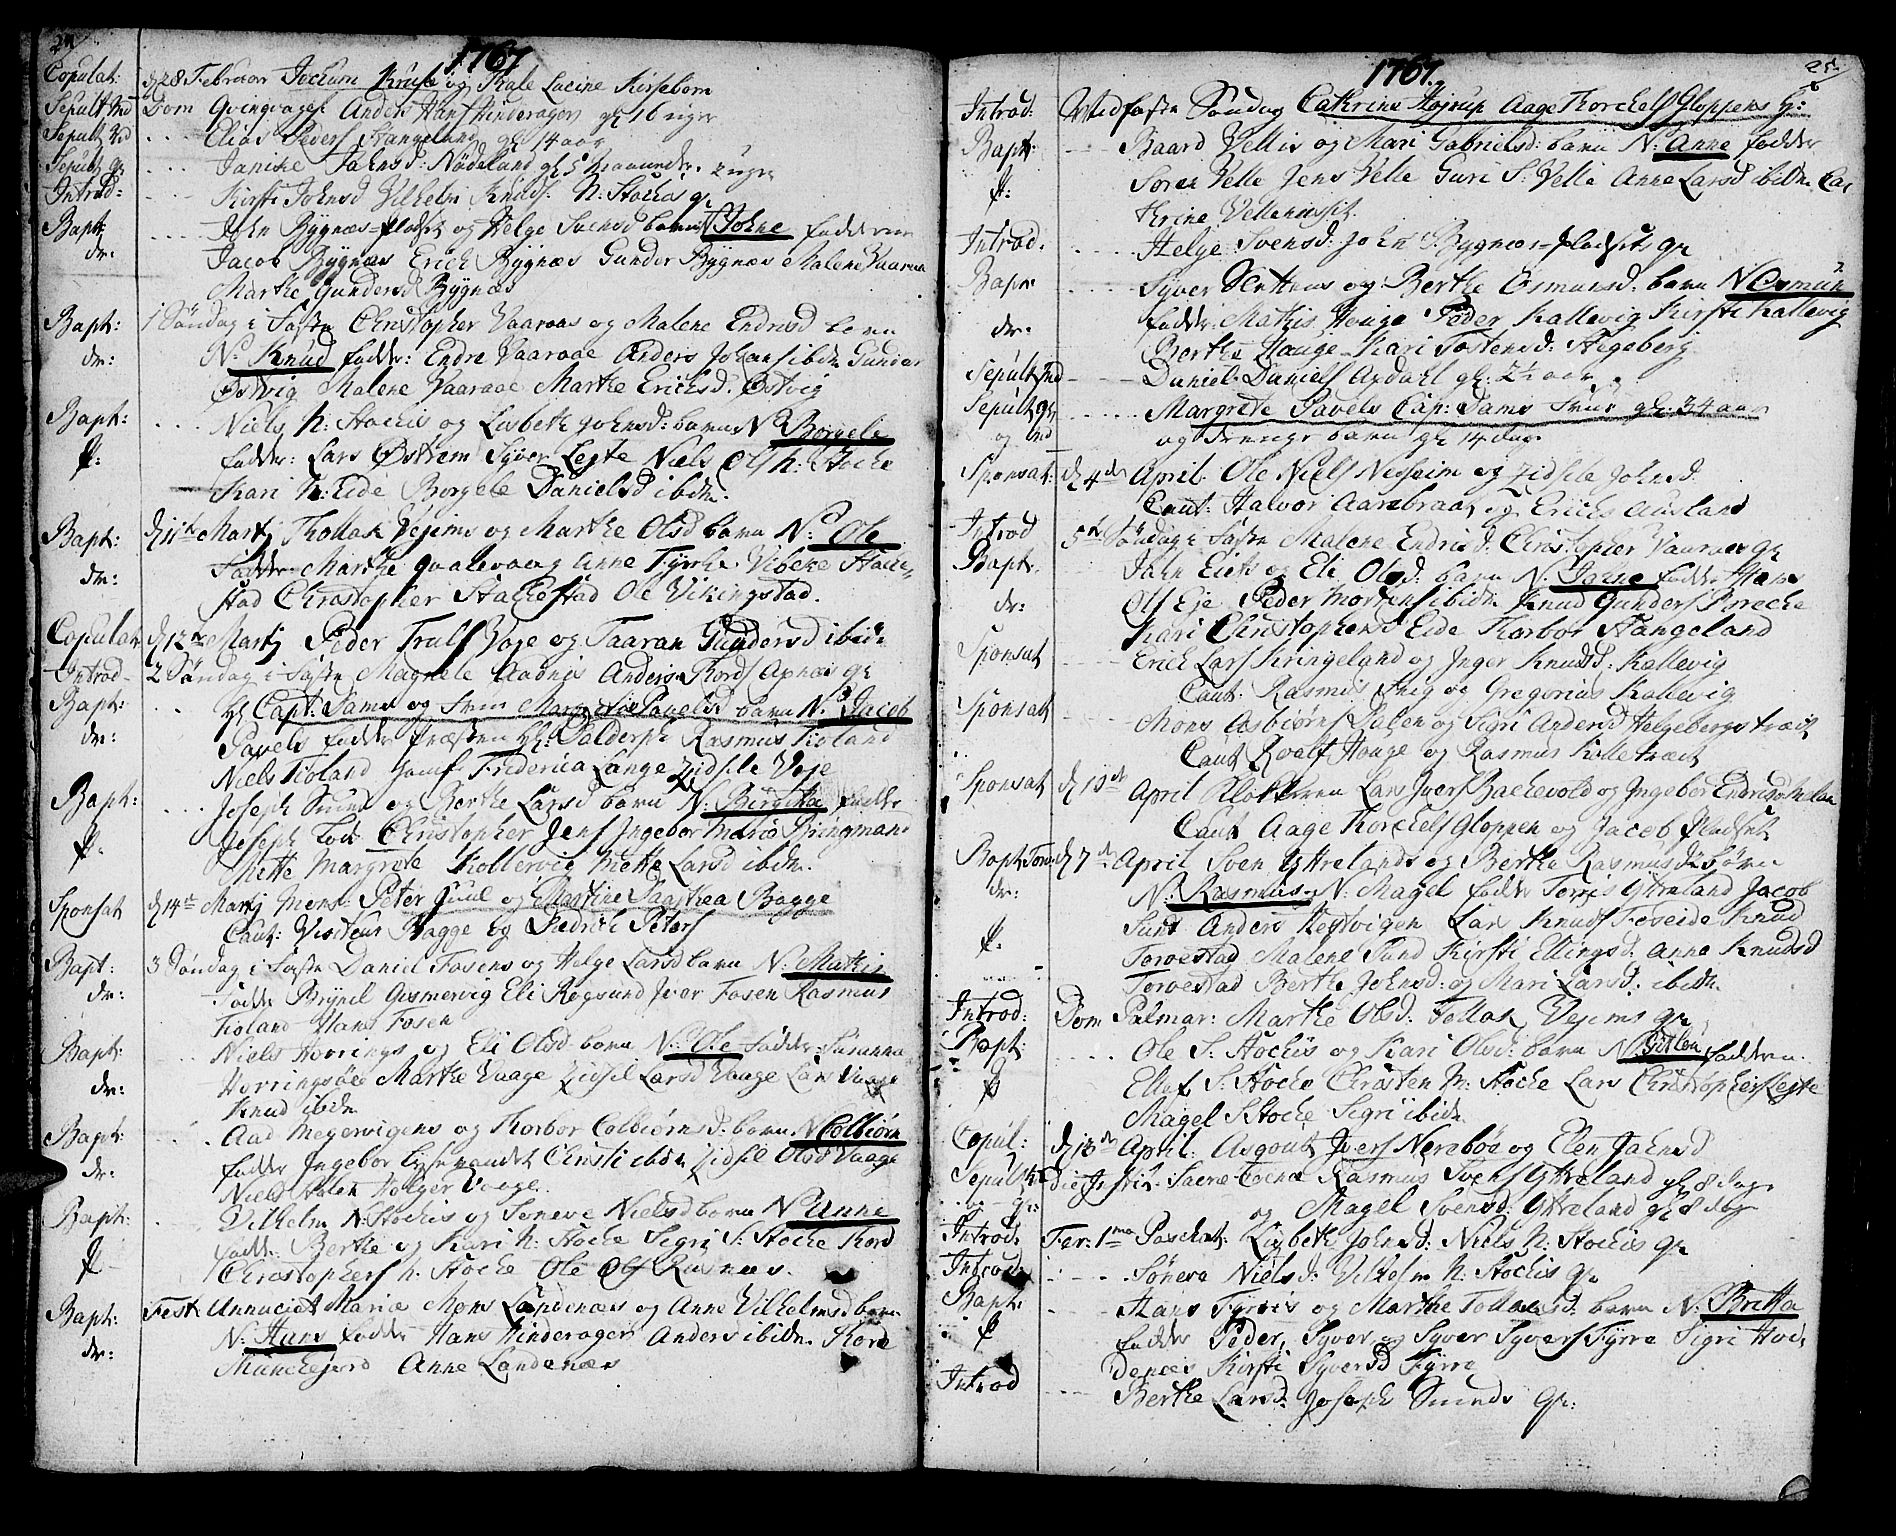 24
1767
Copulat: d 28 Februar Jochum Kruse og Karle Lucine Kirsebom
Sepult Ind Dom Qvinqvages Anders Hans Hinderager gl 16 uger
Sepult Ind Elias Peders Stangeland gl 14 aar
Sepult gr Janike Johnsd: Nödeland gl 5 Maaneder 2 uger
Introd: Kirsti Johnsd Vilhelm Knuds N: Stochis qv
Bapt: John Bygnæs-pladset og Helge Svensd barn N. Johne fadderne
dr: Jacob Bygnæs Erich Bygnæs Gunder Bygnæs Malene Vaaraa
Marthe Gundersd Bygnæs
Bapt: 1 Söndag i Faste Christopher Vaaraas og Malene Endresd barn
dr: N. Knud fadder: Endre Vaaraae Anders Johans ibdn Gunder
Østvig Malene Vaaraae Marthe Ericksd. Østvig
Bapt: Niels N: Stochis og Lisbeth Johnsd: barn N. Borgele
p: fadder: Lars Østrem Syver Lejte Niels Ols N: Stoche
Kari N: Eide Borgele Danielsd ibdn.
Bapt: d 11te Martj Tollak Vejems og Marthe Olsd barn N: Ole
dr: Fadder Marthe Qualevaag Anne Fyrche Vibeke Stache-
stad Christopher Stachestad Ole Vikingstad.
Copulat d 12te Martj Peder Truls Vage og Taaran Gundersd ibidn
Introd 2 Söndag i Faste Magnele Aadnis Anders Tords Apnæs qv
Bapt: Hr Capt: Sams og Frue Margrete Pavelsd barn N. Jacob
dr: Pavels fadder Præsten Hr: Paldorph Rasmus Fioland
Niels Fioland Jomf Frederica Lange Zidsele Veje
Bapt: Joseph Sunds og Berthe Larsd barn N: Birgitha fadder
p: Joseph Christopher Jens Ingebor Maria Bringmand
Mette Margrete Kallevig Mette Larsd ibdn.
Sponsat d 14te Martj Mons: Peter Juul og Martine Bagge
Caut: Visiteur Bagge og Diedrich Peters
Bapt: 3 Söndag i Faste Daniel Fosens og Helge Larsd barn N: Mathis
dr: Fadder Brynil Gismervig Eli Rogsund Iver Fosen Rasmus
Fioland Hans Fosen
Bapt: Niels Horrings og Eli Olsd barn N: Ole fadder: Susanna
dr: Horringsöe Marthe Vaage Zidsil Larsd Vaage Lars Vaage
Knud ibdn
Bapt: Aad Megervigens og Thorbor Colbiörnsd: barn N Colbiörn
dr: fadder Ingebor Christi ibdn Zidsil Olsd Vaage
Niels Holger Vaage.
Bapt: Vilhelm N: Stochis og Söneve Nielsd barn N: Anne
p fadder. Berthe og Kari N: Stoche Sigri S: Stoche Tord
Christophers N: Stoche Ole Ols Rusnæs.
Bapt: Fest Annuciat Mariæ Mons Landenæs og Anne Vilhelmsd barn
dr: N. Hans fadder Hans Hinderager Anders ibidn Tord
Munchejord Anne Landenæs
1767.
25
Introd: Midfaste Söndag Cathrine Höjrup Aage Thorchels Gloppens qv:
Bapt: Baard Vellis og Mari Gabrielsd: barn N: Anne fadder
p: Soren Velle Jens Velle Guri S: Velle Anne Larsd ibidn Ca-
thrine Vellemusit.
Introd. Helge Svensd: John S. Bygnæs-pladsets qv
Bapt: Syver Slettens og Berthe Osmunsd. barn N Osmun
dr: fadder: Mathis Houge Peder Kallevig Kirsti Kallevig
Berthe Houge Kari Tostensd: Stegeberg
Sepult Ind Daniel Daniels Avdahl gl: 2½ aar
Sepult qv Margrete Pavels Cap: Sams Frue gl: 34 aar
og Ind og Drenge barn gl 14 dage
Sponsat: d 4de April. Ole Niels Nesheim og Zidsele Johnsd.
Caut: Halvor Aarebraat og Erich Ausland
Introd 5te Söndag i Faste Malene Endresd. Christopher Vaaraaes qv
Bapt. John Eies og Eli Olsd: barn N. Johne fadder Hans
dr: Ols Eje Peder Mortens ibidn Knud Gunders Breche
Kari Christophersd Eide Thorbor Stangeland
Sponsat Erich Lars Kringeland og Inger Knudsd. Kallevig
Caut: Rasmus Kuig og Gregorius Kallevig
Sponsat Mons Asbiörns Dalen og Sigri Andersd Helgebergs træet
Caut Roalf Houge og Rasmus Kolletræet
Sponsat d 10de April Klokkeren Lars Ivers Bachevold og Ingebor Endresd
Caut Aage Thorchels Gloppen og Jacob Pladset
Bapt d 7de April Sven Ytrelands og Berthe Rasmusds börn
dr: N. Rasmus. N: Magel fadder Torris Ytreland Jacob
p. Sund Anders Hestvigen Lars Knuds Foseide Knud
Torvestad Malene Sund Kirsti Ellingsd. Anna Knudsd
Torvestad Berthe Johnsd: og Mari Larsd: ibidn
Introd: Dom Palmar: Marthe Olsd: Tollak Vejems qv
Bapt: Ole S: Stochis og Kari Olsd: barn N: fadderne
p Ellef S: Stoche Christen M: Stoche Lars Christophers Lejte
Magel S: Stoche Sigri ibidn
Copul: d 13de April. Asgout Ivers Nerebøe og Elen Johnsd
Sepult Die Instit: Sacræ Coenæ Rasmus Svens Ytreland gl 8 dage
og Magel Svensd: Ytreland gl 8 dage
Introd: Fer: 1ma Paschat: Lisbeth Johnsd: Niels N: Stochis qv
Introd Söneva Nielsd: Vilhelm N: Stochis qv
Bapt: Hans Fyrris og Marthe Tollaksd: barn N: Britta
p fadder Peder, Syver og Syver Syvers Fyrre Sigri Ho-
Introd Kirsti Syversd Fyrre
Berthe Larsd. Joseph Sunds qv: